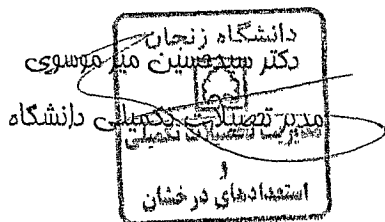 دانشگاه زنجان
دکتر سیدحسین میرموسوی
مدیر تحصیلات تکمیلی دانشگاه
مدیریت تحصیلات تکمیلی
و
استعدادهای درخشان